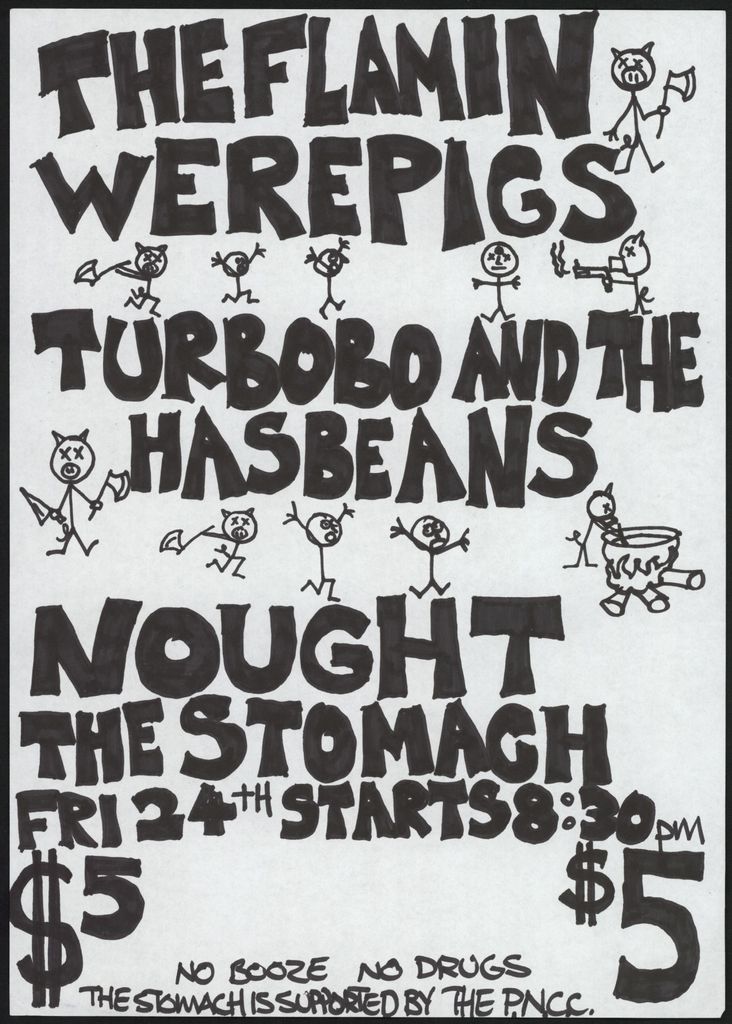 THE FLAMIN
WEREPIGS
TURBOBO AND THE
HASBEANS
NOUGHT
THE STOMACH
FRI 24TH STARTS 8:30 PM
$5 $5
NO BOOZE NO DRUGS
THE STOMACH IS SUPPORTED BY THE P.N.C.C.